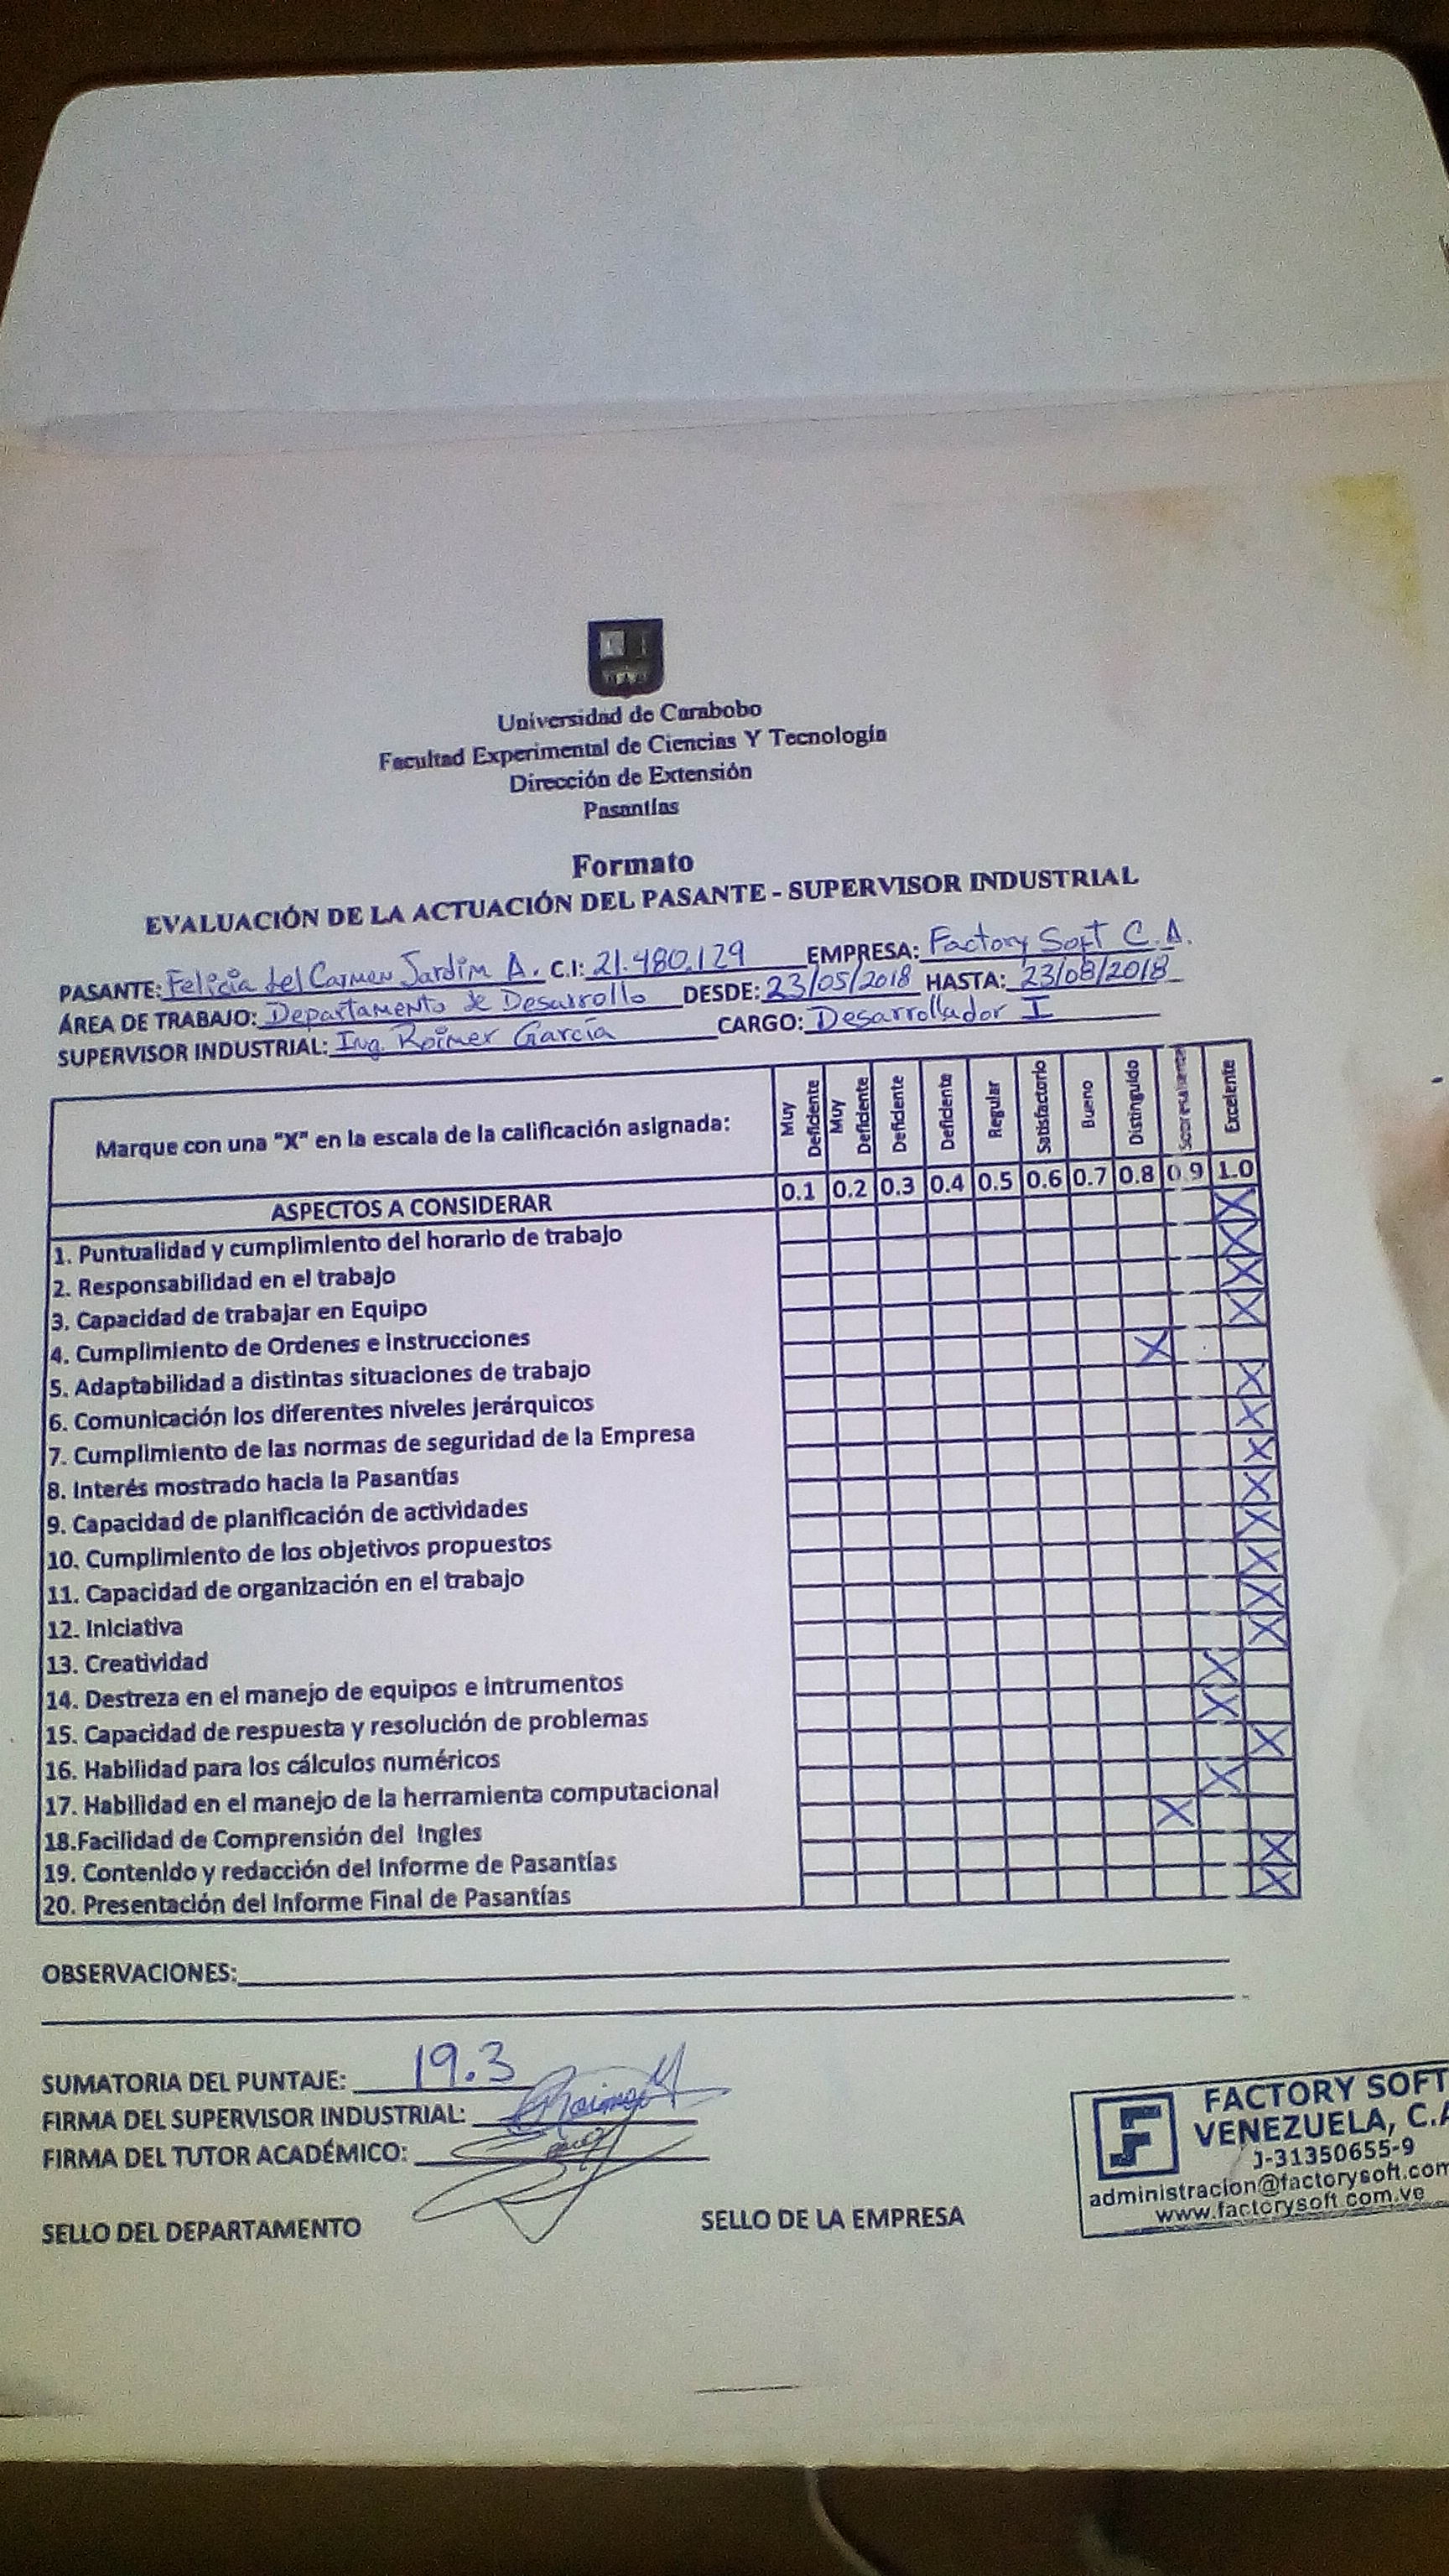 Universidad de Carabobo
Facultad Experimental de Ciencias Y Tecnología
Dirección de Extensión
Pasantías
Formato
EVALUACIÓN DE LA ACTUACIÓN DEL PASANTE - SUPERVISOR INDUSTRIAL
PASANTE: Felicia del Carmen Jardim A. C.I: 21.480.129 EMPRESA: Factory Soft C.A.
ÁREA DE TRABAJO: Departamento de Desarrollo DESDE: 23/05/2018 HASTA: 23/08/2018
SUPERVISOR INDUSTRIAL: Ing. Roimer García CARGO: Desarrollador I
Marque con una "X" en la escala de la calificación asignada: Muy Deficiente Muy Deficiente Deficiente Deficiente Regular Satisfactorio Bueno Distinguido Sobresaliente Excelente
ASPECTOS A CONSIDERAR 0.1 0.2 0.3 0.4 0.5 0.6 0.7 0.8 0.9 1.0
1. Puntualidad y cumplimiento del horario de trabajo X
2. Responsabilidad en el trabajo X
3. Capacidad de trabajar en Equipo X
4. Cumplimiento de Ordenes e instrucciones X
5. Adaptabilidad a distintas situaciones de trabajo X
6. Comunicación los diferentes niveles jerárquicos X
7. Cumplimiento de las normas de seguridad de la Empresa X
8. Interés mostrado hacia la Pasantías X
9. Capacidad de planificación de actividades X
10. Cumplimiento de los objetivos propuestos X
11. Capacidad de organización en el trabajo X
12. Iniciativa X
13. Creatividad X
14. Destreza en el manejo de equipos e intrumentos X
15. Capacidad de respuesta y resolución de problemas X
16. Habilidad para los cálculos numéricos X
17. Habilidad en el manejo de la herramienta computacional X
18.Facilidad de Comprensión del Ingles X
19. Contenido y redacción del Informe de Pasantías X
20. Presentación del Informe Final de Pasantías X
OBSERVACIONES:
SUMATORIA DEL PUNTAJE: 19.3
FIRMA DEL SUPERVISOR INDUSTRIAL:
FIRMA DEL TUTOR ACADÉMICO:
SELLO DEL DEPARTAMENTO SELLO DE LA EMPRESA
FACTORY SOFT
VENEZUELA, C.A
J-31350655-9
administracion@factorysoft.com
www.factorysoft.com.ve